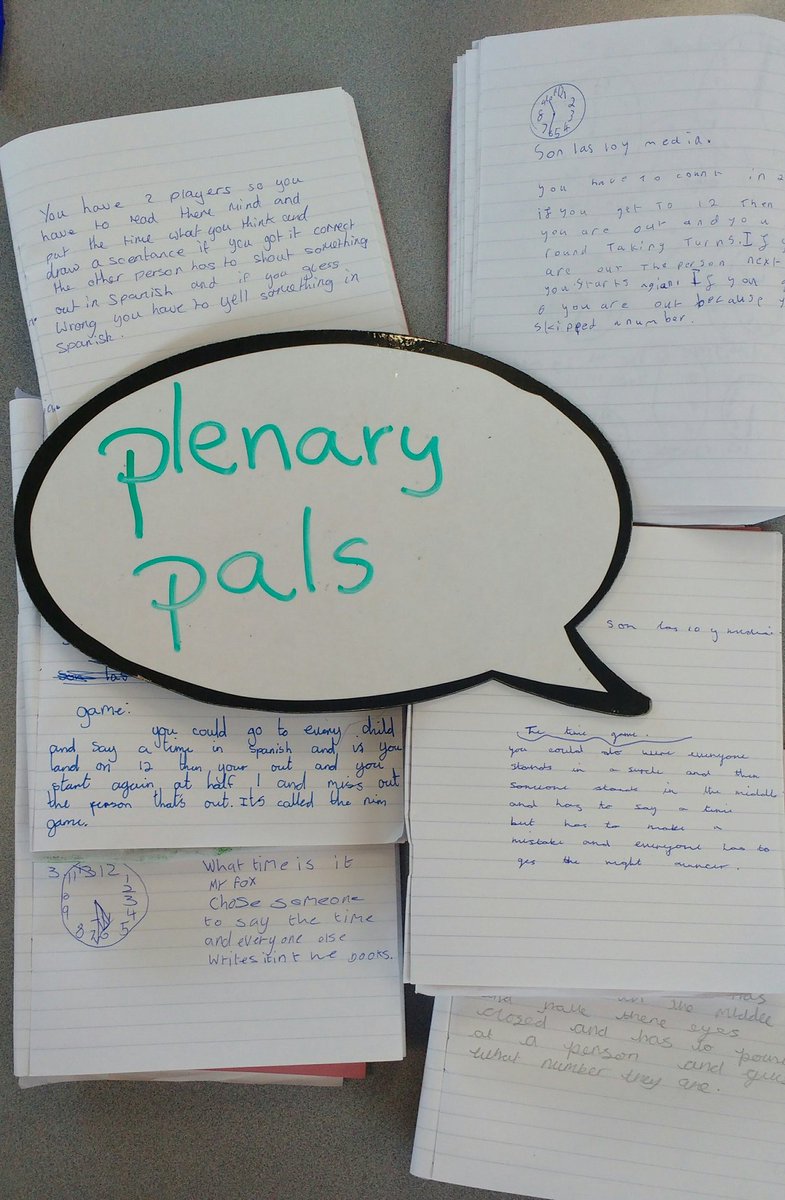 You have 2 players so you
have to read there mind and
put the time what you think and
draw a scentance if you got it correct
the other person has to shout something
out in Spanish and if you guess
Wrong you have to yell something in
Spanish.
2
3
4
5
6
7
8
Son las 10 y media.
you have to count in 2
if you get to 12 then
you are out and you
round Taking Turns. If y
are out The person next
you starts again If you
6 you are out because y
skipped a number.
plenary
pals
son las 10 y media.
game:
you could go to every child
and say a time in Spanish and is you
land on 12 then your out and you
start again at half 1 and miss out
the person that's out. Its called the nim
game.
The time game.
you could do were everyone
stands in a and then
someone stands in the middle
and has to say a time
but has to make a
mistake and everyone has to
ges the right
3
12
1
2
3
4
5
7
8
9
What time is it
Mr Fox
Chose someone
to say the time
and everyone else
Writes it in the books.
has
the middle
and have there eyes
closed and has to poin
at a person and gue
what number they are.